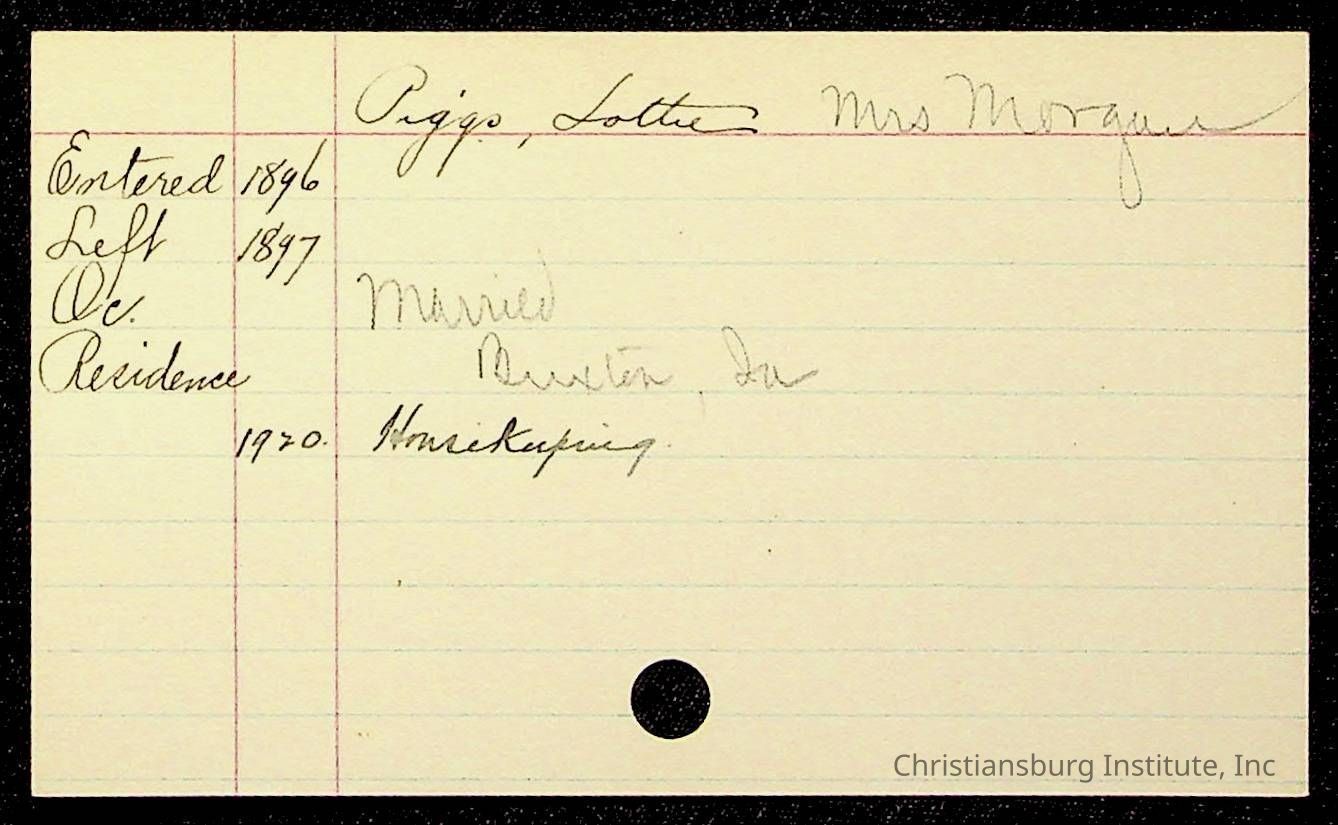 Piggs, Lottie Mrs Morgan
Entered 1896
Left 1897
Oc. Married
Residence Buxton, Ia
1920. Housekeeping.
Christiansburg Institute, Inc